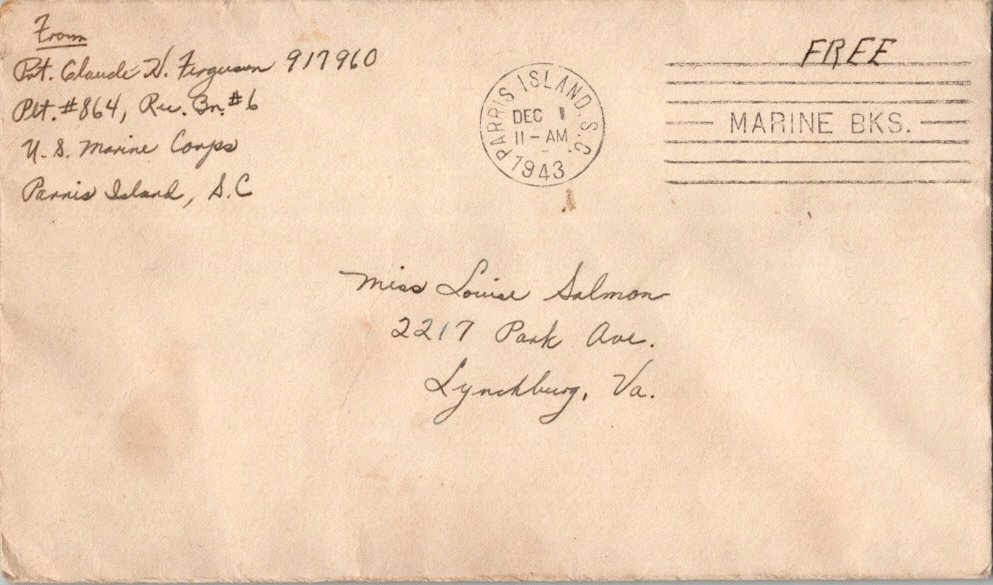 From
Pvt. Claude H. Ferguson 917960
Plt. #864, Rec. Bn. #6
U. S. Marine Corps
Parris Island, S.C
PARRIS ISLAND, S.C.
DEC 1
11-AM
1943
FREE
MARINE BKS.
Miss Louise Salmon
2217 Park Ave.
Lynchburg, Va.